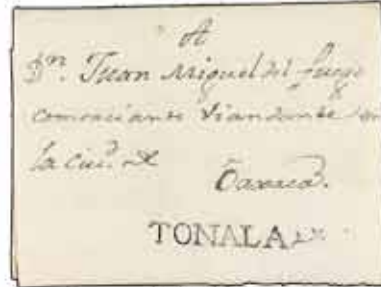 A
Dn. Juan Miguel del fuego
comerciante Viandante en
la ciud. de
Oaxaca.
TONALA